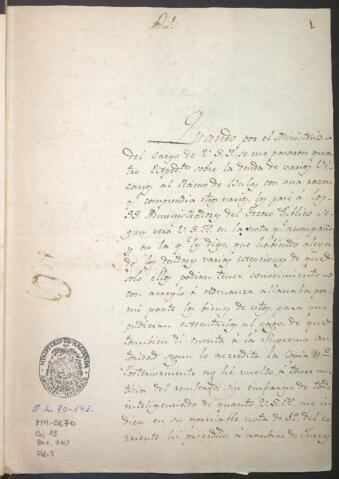 1
Quando por el Ministerio
del cargo de V.S.Y. se me pasaron qua
tro Exped.tes sobre la deuda de varios
al Ramo de Bulas con una razon
q.e comprendia otros varios, los pasé a los
SS. Administradores del Tesoro Publico se
gun verá V.S.Y. en la nota q.e acompaño
y en la q.e les digo, que habiendo alega
do los deudores varias excepciones de que
solo ellos podian tener conocimiento
con arreglo á ordenanza allanaba por
mi parte los bienes de estos, para que
pudieran executarlos al pago, de que
tambien di cuenta a la Suprema au
toridad segun lo acredita la Copia
Posteriormente no he vuelto a tener no
ticia del resultado; sin embargo de todo
inteligenciado de quanto V.S.Y. me in
dica en su honorable nota de 12 del co
rriente hé procedido á nombrar de Juezes
MINISTERIO DE HACIENDA
O.L. 70-143.
MH-OL70
Caj. 18
Doc. 240
Fol. 3